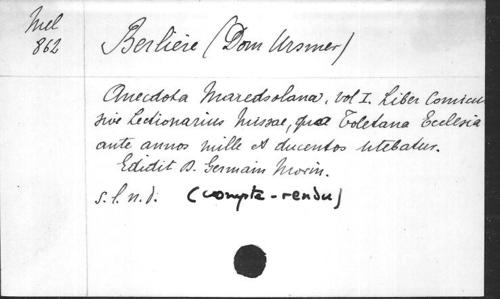 Mel
862
Berlière (Dom Ursmer)
Anecdota Maredsolana, vol I. Liber Comicus
sive Lectionarius Missae, quo Toletana Ecclesia
ante annos mille et ducentos utebatur.
Edidit D. Germain Morin.
s. l. n. d. (compte-rendu)